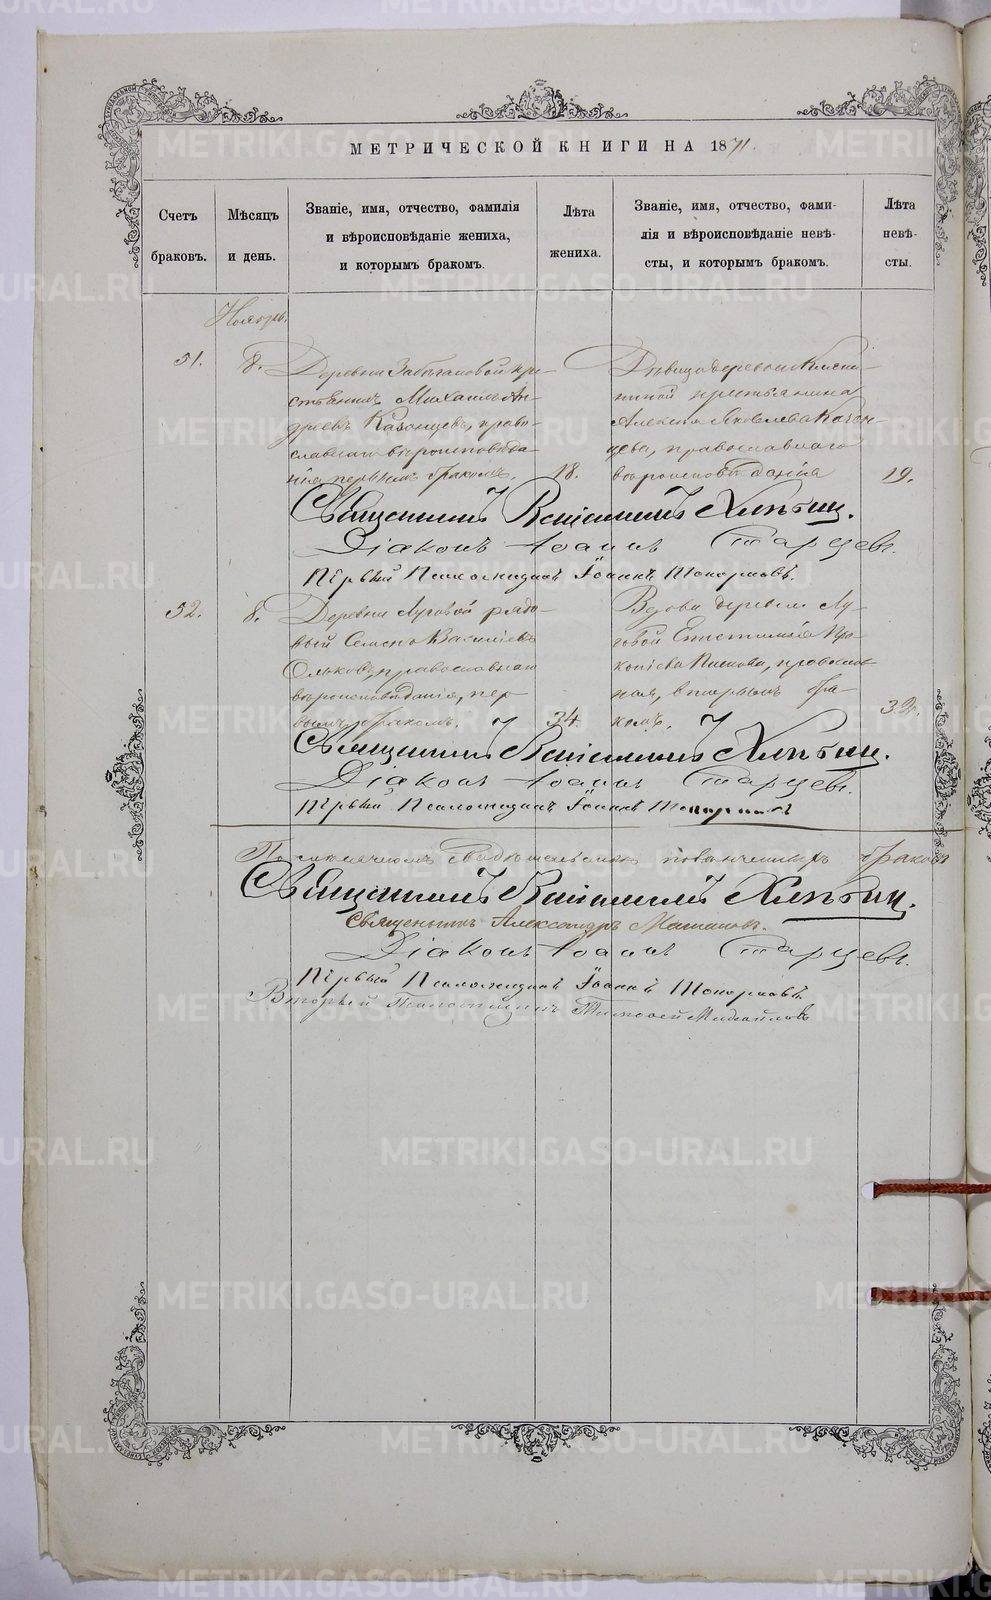 МЕТРИЧЕСКОЙ КНИГИ НА 1871.
Счетъ браковъ.
Мѣсяцъ и день.
Званіе, имя, отчество, фамилія
и вѣроисповѣданіе жениха,
и которымъ бракомъ.
Лѣта жениха.
Званіе, имя, отчество, фами-
лія и вѣроисповѣданіе невѣ-
сты, и которымъ бракомъ.
Лѣта невѣ-
сты.
Ноябрь.
51.
8.
Деревни кре-
стьянинъ Михаилъ Ан-
дреевъ Казанцевъ, право-
славнаго вѣроисповѣда-
нія, первымъ бракомъ.
18.
Дѣвица деревни
крестьянина
Алексѣя Яковлева Казан-
цева, православнаго
вѣроисповѣданія
19.
Священникъ Веніаминъ Хлѣбин.
Діаконъ Іоаннъ Старцевъ.
Первый Псаломщикъ Іоаннъ Топорковъ.
52.
8.
Деревни Луговой рядо-
вый Семенъ Василіевъ
Ольковъ, православнаго
вѣроисповѣданія, пер-
вымъ бракомъ.
34
Вдова деревни Лу-
говой Про-
копіева православ-
ная, вторымъ бра-
комъ.
32.
Священникъ Веніаминъ Хлѣбин.
Діаконъ Іоаннъ Старцевъ.
Первый Псаломщикъ Іоаннъ Топорковъ
повѣнчанныхъ браковъ
Священникъ Веніаминъ Хлѣбин.
Священникъ Александръ
Діаконъ Іоаннъ Старцевъ.
Первый Псаломщикъ Іоаннъ Топорковъ.
Вторый Псаломщикъ Тимофей Михайловъ
METRIKI.GASO-URAL.RU